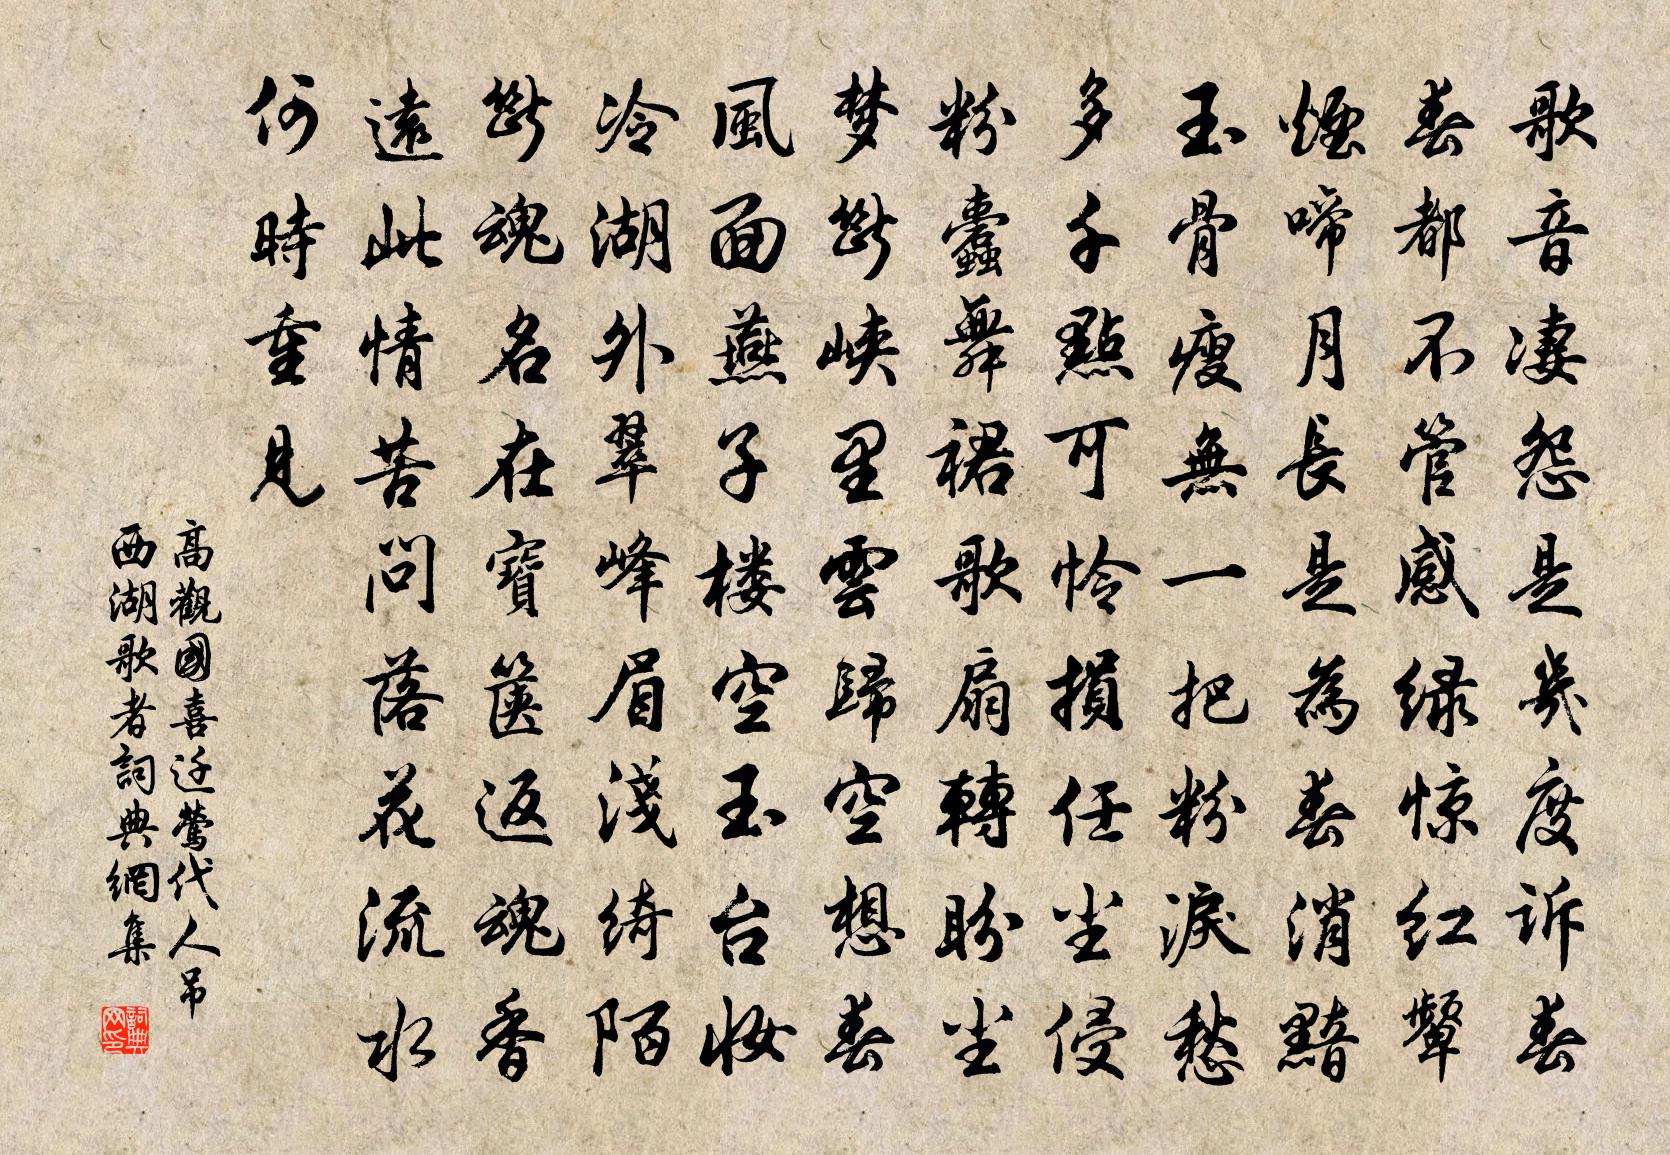 歌音凄怨是幾度诉春
春都不管感绿惊红颦
煙啼月長是為春消黯
玉骨瘦無一把粉淚愁
多千點可怜損任尘侵
粉蠹舞裙歌扇轉盼尘
梦斷峡里雲歸空想春
風面燕子楼空玉台妆
冷湖外翠峰眉淺绮陌
斷魂名在寶篋返魂香
遠此情苦問落花流水
何時重見
高觀國喜迁鶯代人吊
西湖歌者詞典網集
詞典网印